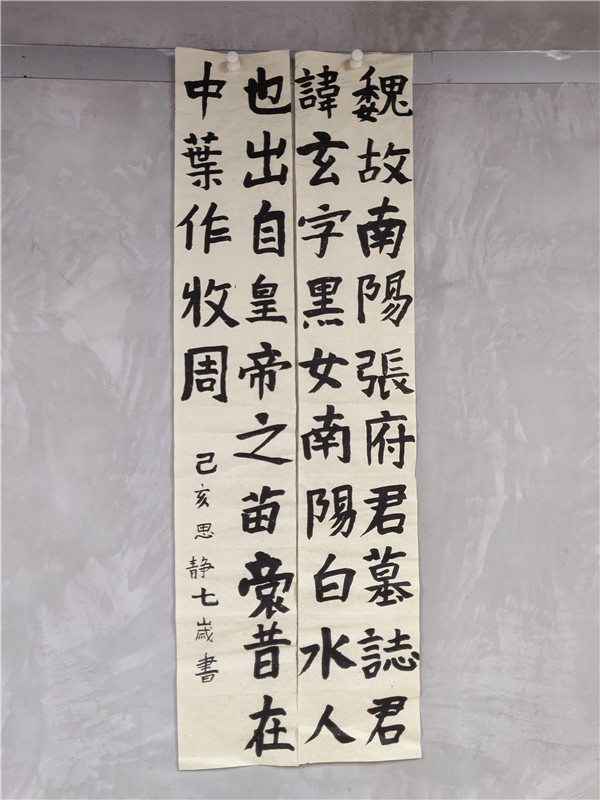 魏故南陽張府君墓誌君
諱玄字黑女南陽白水人
也出自皇帝之苗裔昔在
中葉作收周
己亥思静七歲書